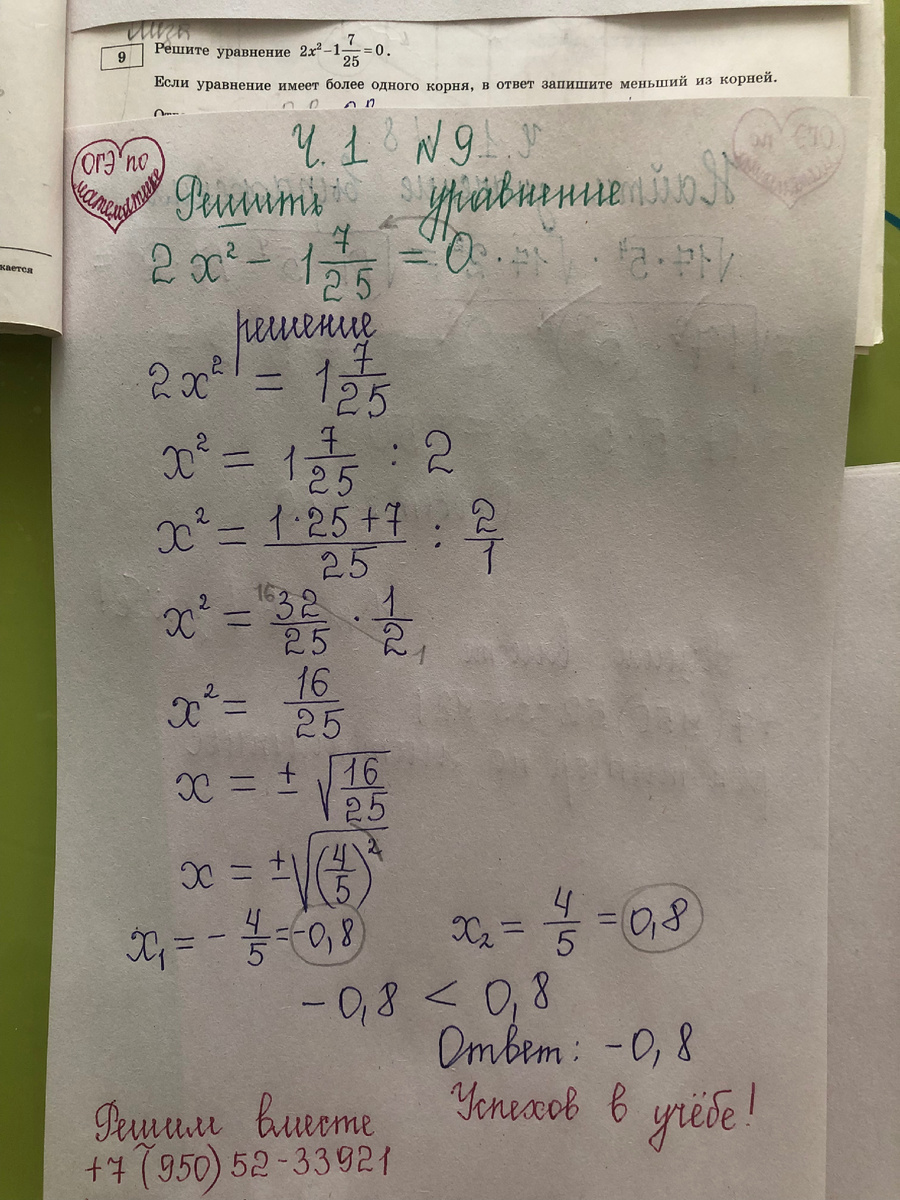 9
Решите уравнение 2x²−1 7/25=0.
Если уравнение имеет более одного корня, в ответ запишите меньший из корней.
Ч.1 №9
ОГЭ по
математике
Решить уравнение
2x² − 1 7/25 = 0
решение
2x² = 1 7/25
x² = 1 7/25 : 2
x² = (1·25+7)/25 : 2/1
16
x² = 32/25 · 1/2
1
x² = 16/25
x = ± √(16/25)
x = ± √((4/5)²)
x₁ = − 4/5 = −0,8 x₂ = 4/5 = 0,8
−0,8 < 0,8
Ответ: −0,8
Успехов в учёбе!
Решим вместе
+7 (950) 52-33921
кается